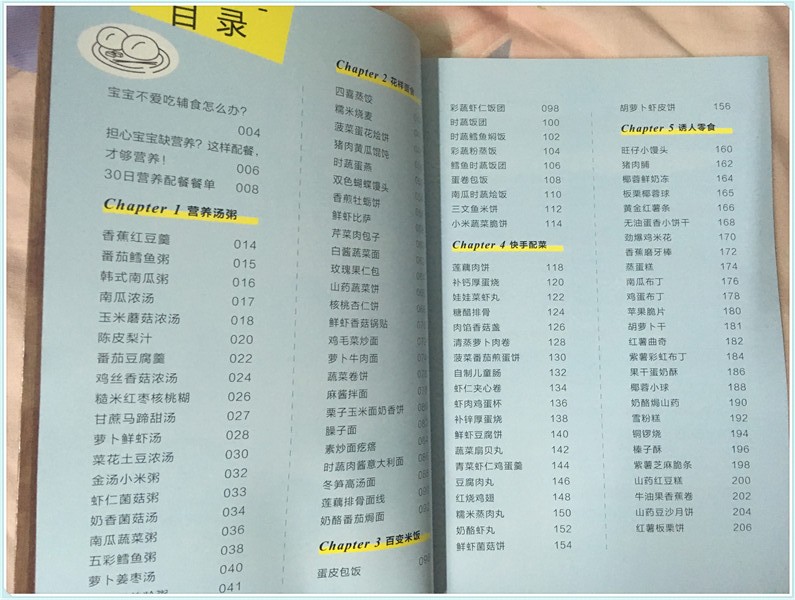 目录
宝宝不爱吃辅食怎么办?
004
担心宝宝缺营养?这样配餐,
才够营养!
006
30日营养配餐餐单 008
Chapter 1 营养汤粥
香蕉红豆羹 014
番茄鳕鱼粥 015
韩式南瓜粥 016
南瓜浓汤 017
玉米蘑菇浓汤 018
陈皮梨汁 020
番茄豆腐羹 022
鸡丝香菇浓汤 024
糙米红枣核桃糊 026
甘蔗马蹄甜汤 027
萝卜鲜虾汤 028
菜花土豆浓汤 030
金汤小米粥 032
虾仁菌菇粥 033
奶香菌菇汤 034
南瓜蔬菜粥 036
五彩鳕鱼粥 038
萝卜姜枣汤 040
041
Chapter 2 花样面食
四喜蒸饺
糯米烧麦
菠菜蛋花烩饼
猪肉黄瓜馄饨
时蔬蛋燕
双色蝴蝶馒头
香煎牡蛎饼
鲜虾比萨
芹菜肉包子
白酱蔬菜面
玫瑰果仁包
山药蔬菜饼
核桃杏仁饼
鲜虾香菇锅贴
鸡毛菜炒面
萝卜牛肉面
蔬菜卷饼
麻酱拌面
栗子玉米面奶香饼
臊子面
素炒面疙瘩
时蔬肉酱意大利面
冬笋高汤面
莲藕排骨面线
奶酪番茄焗面
Chapter 3 百变米饭
蛋皮包饭
彩蔬虾仁饭团 098
时蔬饭团 100
时蔬鳕鱼焖饭 102
彩蔬粉蒸饭 104
鳕鱼时蔬饭团 106
蛋卷包饭 108
南瓜时蔬烩饭 110
三文鱼米饼 112
小米蔬菜脆饼 114
Chapter 4 快手配菜
莲藕肉饼 118
补钙厚蛋烧 120
娃娃菜虾丸 122
糖醋排骨 124
肉馅香菇盏 126
清蒸萝卜肉卷 128
菠菜番茄煎蛋饼 130
自制儿童肠 132
虾仁夹心卷 134
虾肉鸡蛋杯 136
补锌厚蛋烧 138
鲜虾豆腐饼 140
蔬菜扇贝丸 142
青菜虾仁鸡蛋羹 144
豆腐肉丸 146
红烧鸡翅 148
糯米蒸肉丸 150
奶酪虾丸 152
鲜虾菌菇饼 154
胡萝卜虾皮饼 156
Chapter 5 诱人零食
旺仔小馒头 160
猪肉脯 162
椰蓉鲜奶冻 164
板栗椰蓉球 165
黄金红薯条 166
无油蛋香小饼干 168
劲爆鸡米花 170
香蕉磨牙棒 172
蒸蛋糕 174
南瓜布丁 176
鸡蛋布丁 178
苹果脆片 180
胡萝卜干 181
红薯曲奇 182
紫薯彩虹布丁 184
果干蛋奶酥 186
椰蓉小球 188
奶酪焗山药 190
雪粉糕 192
铜锣烧 194
榛子酥 196
紫薯芝麻脆条 198
山药红豆糕 200
牛油果香蕉卷 202
山药豆沙月饼 204
红薯板栗饼 206